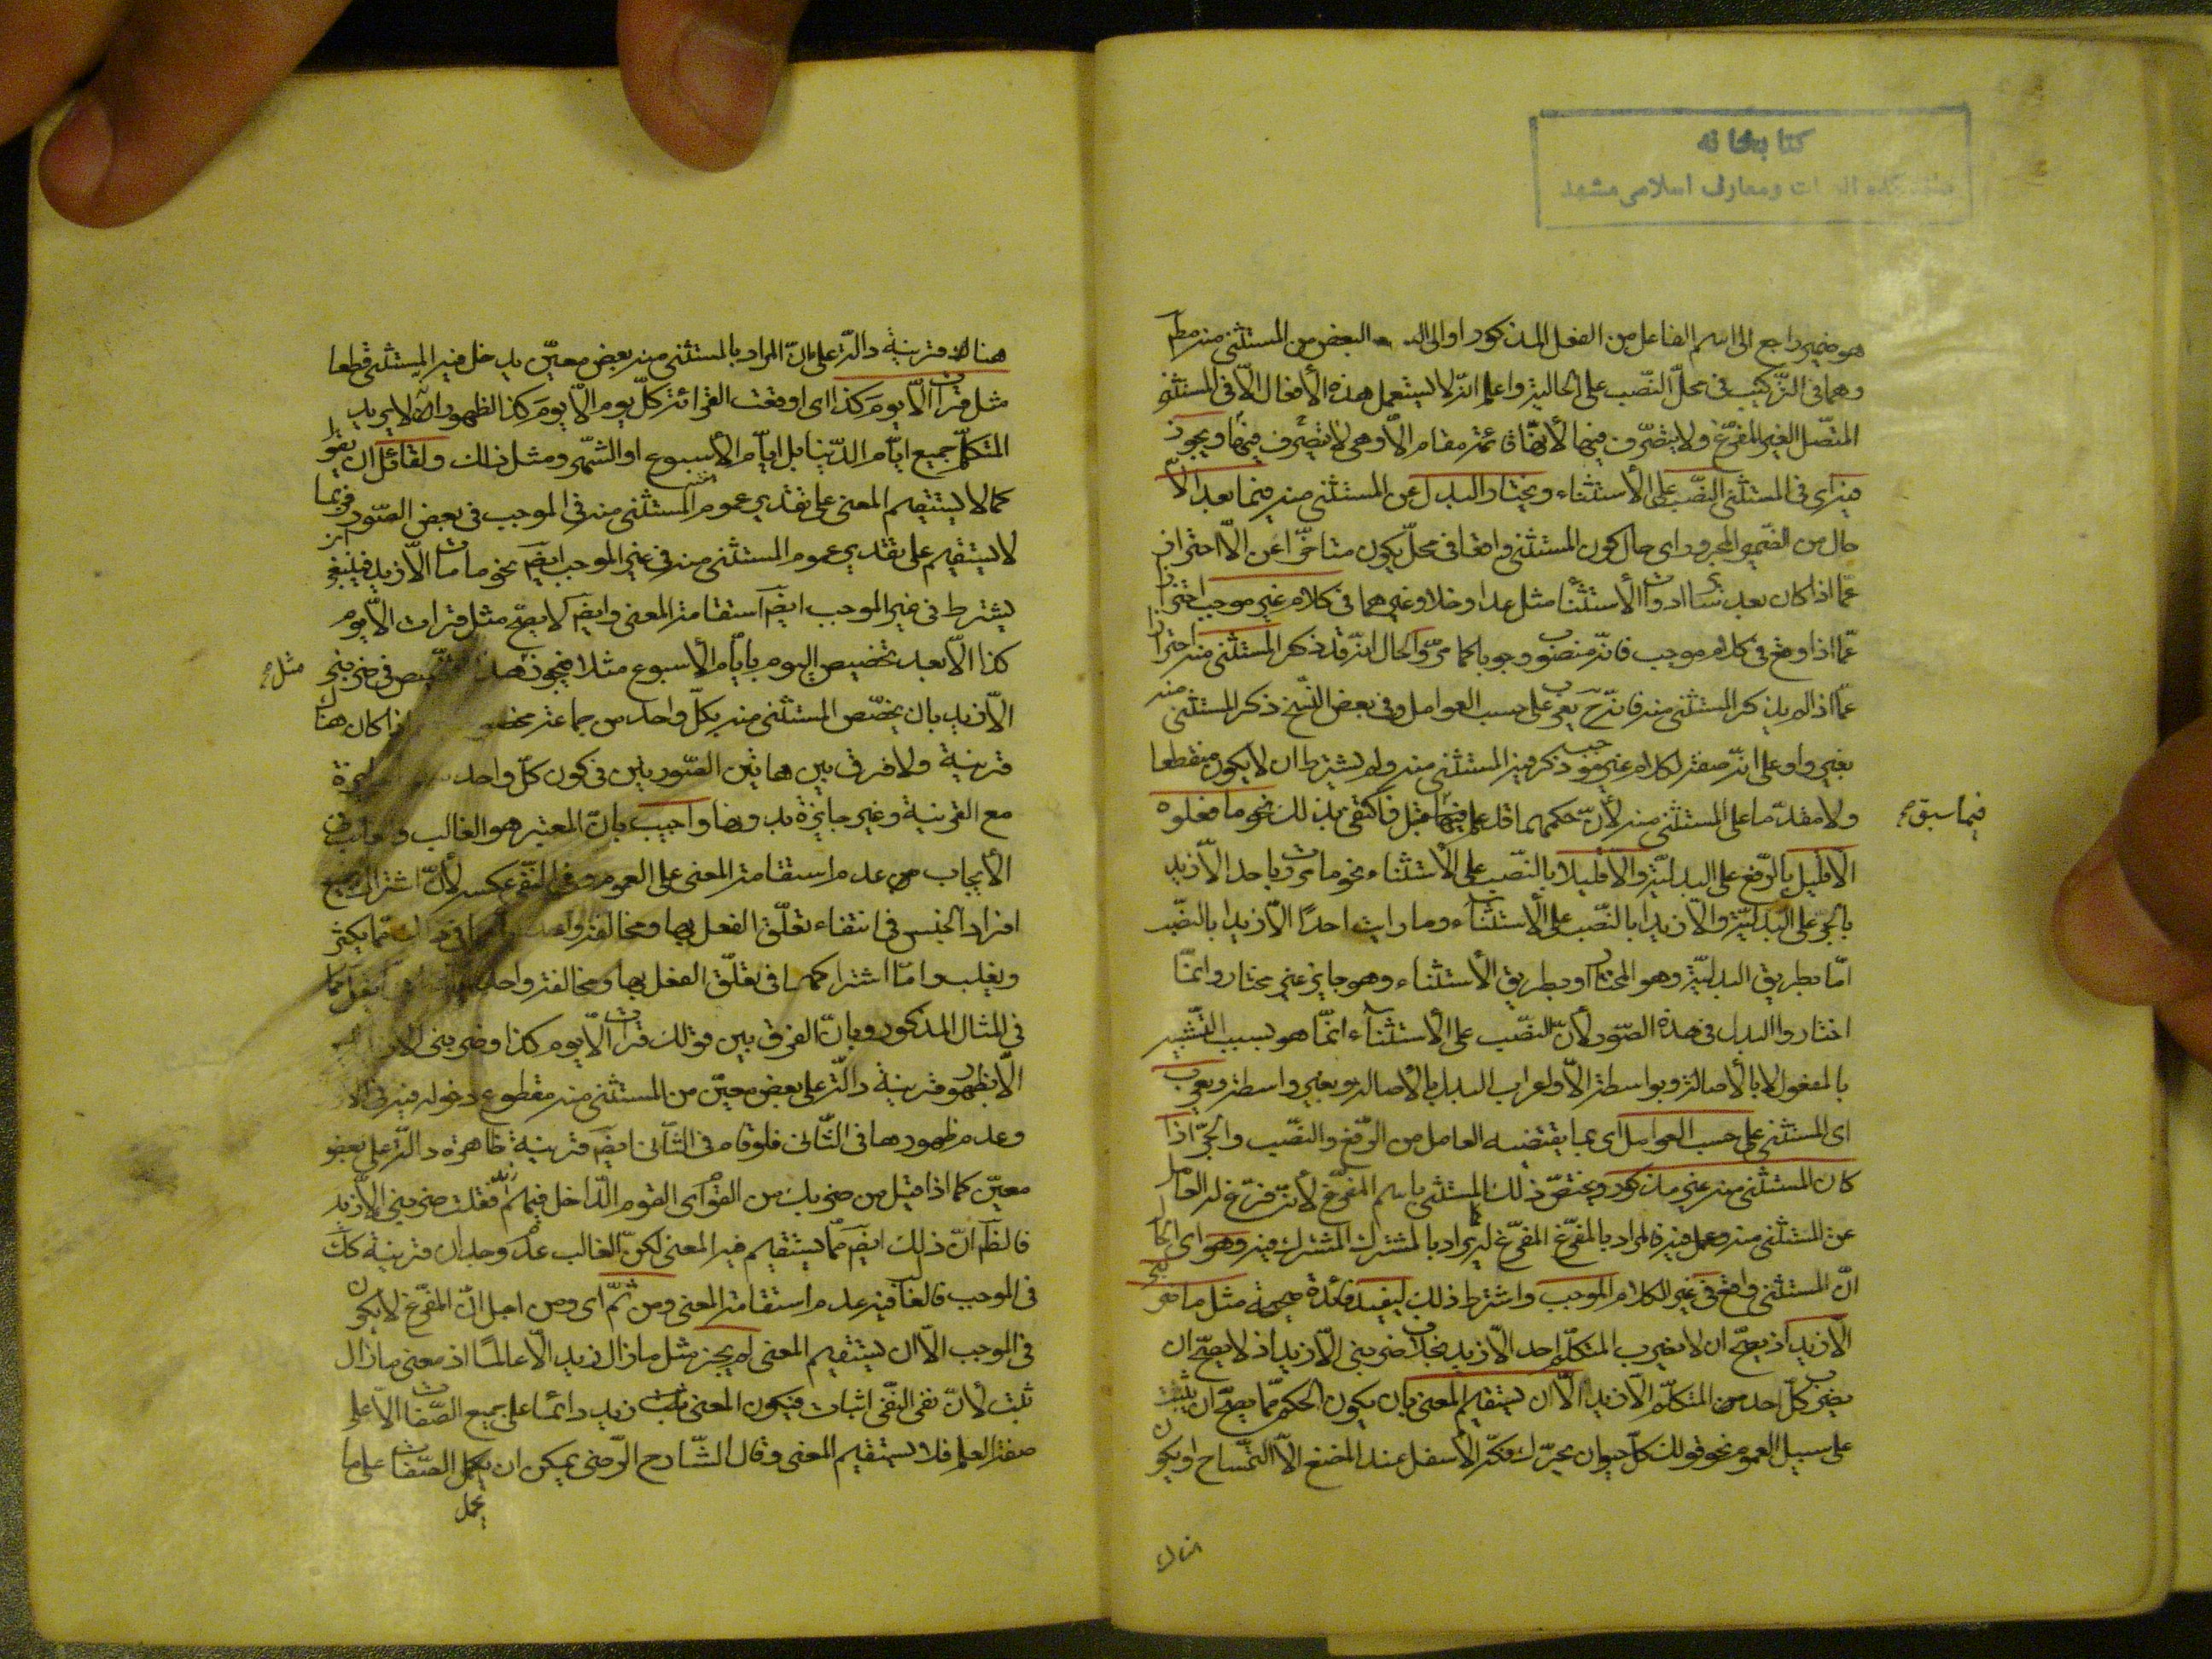 كتابخانه
ات ومعارف اسلامى مشهد
هو ضمير راجع الى اسم الفاعل من الفعل المذكور او الى البعض من المستثنى منه مطم
وهما فى التركيب فى محل النصب على الحالية واعلم انه لا يستعمل هذه الأفعال الّا فى المستثنى
المتصل الغير المفرغ ولا يتصرف فيها لأنها قائمة مقام الّا وهى لا يتصرف فيها ويجوز
فيه اى فى المستثنى النصب على الأستثناء ويختار البدل عن المستثنى منه فيما بعد الّا
حال من الضمير المجرور اى حال كون المستثنى واقعا فى محل يكون متأخرا عن الّا احتراز
عمّا اذا كان بعد سائر ادوات الأستثناء مثل عدا وخلا وغيرهما فى كلام غير موجب احتراز
عمّا اذا وقع فى كلام موجب فانه منصوب وجوبا كما مرّ والحال انه قد ذكر المستثنى منه احتراز
عمّا اذا لم يذكر المستثنى منه فانه ح يعرب على حسب العوامل وفى بعض النسخ ذكر المستثنى منه
بغير واو على انه صفة لكلام غير موجب ذكر فيه المستثنى منه ولم يشترط ان لا يكون منقطعا
ولا مقدّما على المستثنى منه لأنّ حكمهما قد علم فيما قبل فاكتفى بذلك نحو ما فعلوه
فيما سبق
الّا قليل بالرفع على البدلية والّا قليلا بالنصب على الأستثناء نحو ما مررت باحد الّا زيد
بالجر على البدلية والّا زيدا بالنصب على الأستثناء وما رايت احدًا الّا زيدا بالنصب
امّا بطريق البدلية وهو المختار او بطريق الأستثناء وهو جايز غير مختار وانما
اختاروا البدل فى هذه الصور لأنّ النصب على الأستثناء انما هو بسبب التشبيه
بالمفعول لا بالأصالة وبواسطة الّا واعراب البدل بالأصالة وبغير واسطة ويعرب
اى المستثنى على حسب العوامل اى بما يقتضيه العامل من الرفع والنصب والجر اذا
كان المستثنى منه غير مذكور ويختص ذلك المستثنى باسم المفرغ لأنه فرّغ له العامل
عن المستثنى منه فالمراد بالمفرغ المفرغ له كما يراد بالمشترك المشترك فيه وهو اى
انّ المستثنى واقع فى غير الكلام الموجب واشترط ذلك ليفيد فائدة صحيحة مثل ما ضربنى
الّا زيد اذ يصح ان لا يضرب المتكلم احد الّا زيد بخلاف ضربنى الّا زيد اذ لا يصح ان
يضرب كلّ احد من المتكلم الّا زيدا الّا ان يستقيم المعنى بان يكون الحكم مما يصح ان يثبت
على سبيل العموم نحو قولك كل حيوان يحرّك فكه الأسفل عند المضغ الّا التمساح او يكون
هناك
هناك قرينة دالة على انّ المراد بالمستثنى منه بعض معيّن يدخل فيه المستثنى قطعا
مثل قرأت الّا يوم كذا اى اوقعت القراءة كلّ يوم الّا يوم كذا لظهور انه لا يريد
المتكلم جميع ايّام الدنيا بل ايّام الأسبوع او الشهر ومثل ذلك ولقائل ان يقول
كما لا يستقيم المعنى على تقدير عموم المستثنى منه فى الموجب فى بعض الصور فربما
لا يستقيم على تقدير عموم المستثنى منه فى غير الموجب ايضا نحو ما مات الّا زيد فينبغى
يشترط فى غير الموجب ايضا استقامة المعنى وايضا لا يصح مثل قرات الّا يوم
كذا الّا بعد تخصيص اليوم بايّام الأسبوع مثلا فيجوز هذا فى ضربنى
مثل
الّا زيد بان يخصّص المستثنى منه بكلّ واحد من جماعة اذا كان هناك
قرينة ولا فرق بين هاتين الصورتين فى كون كلّ واحد جايزة
مع القرينة وغير جايزة بدونها واجيب بانّ المعتبر هو الغالب والغالب فى
الأيجاب عدم استقامة المعنى على العموم وفى النفى عكسه لأنّ اشتراك جميع
افراد الجنس فى انتفاء تعلّق الفعل بها ومخالفة واحد مما يكثر
ويغلب وامّا اشتراكها فى تعلّق الفعل بها ومخالفة واحد فمما يقل كما
فى المثال المذكور وبانّ الفرق بين قولك قرأت الّا يوم كذا وضربنى الّا زيد
الّا بظهور قرينة دالة على بعض معيّن من المستثنى منه مقطوع دخوله فيه فى الاول
وعدم ظهورها فى الثانى فلو قام فى الثانى ايضا قرينة ظاهرة دالة على بعض
معيّن كما اذا قيل من ضربك من القوم اى القوم الداخل فيهم زيد فقلت ضربنى الّا زيد
فالظاهر انّ ذلك ايضا مما يستقيم فيه المعنى لكن الغالب عدم وجدان قرينة كذلك
فى الموجب فالغالب فيه عدم استقامة المعنى ومن ثمّ اى ومن اجل انّ المفرغ لا يكون
فى الموجب الّا ان يستقيم المعنى لم يجز مثل ما زال زيد الّا عالمًا اذ معنى ما زال
ثبت لأنّ نفى النفى اثبات فيكون المعنى ثبت زيد دائما على جميع الصفات الّا على
صفة العلم فلا يستقيم المعنى وقال الشارح الرضى يمكن ان يحمل الصفات على ما
يحمل